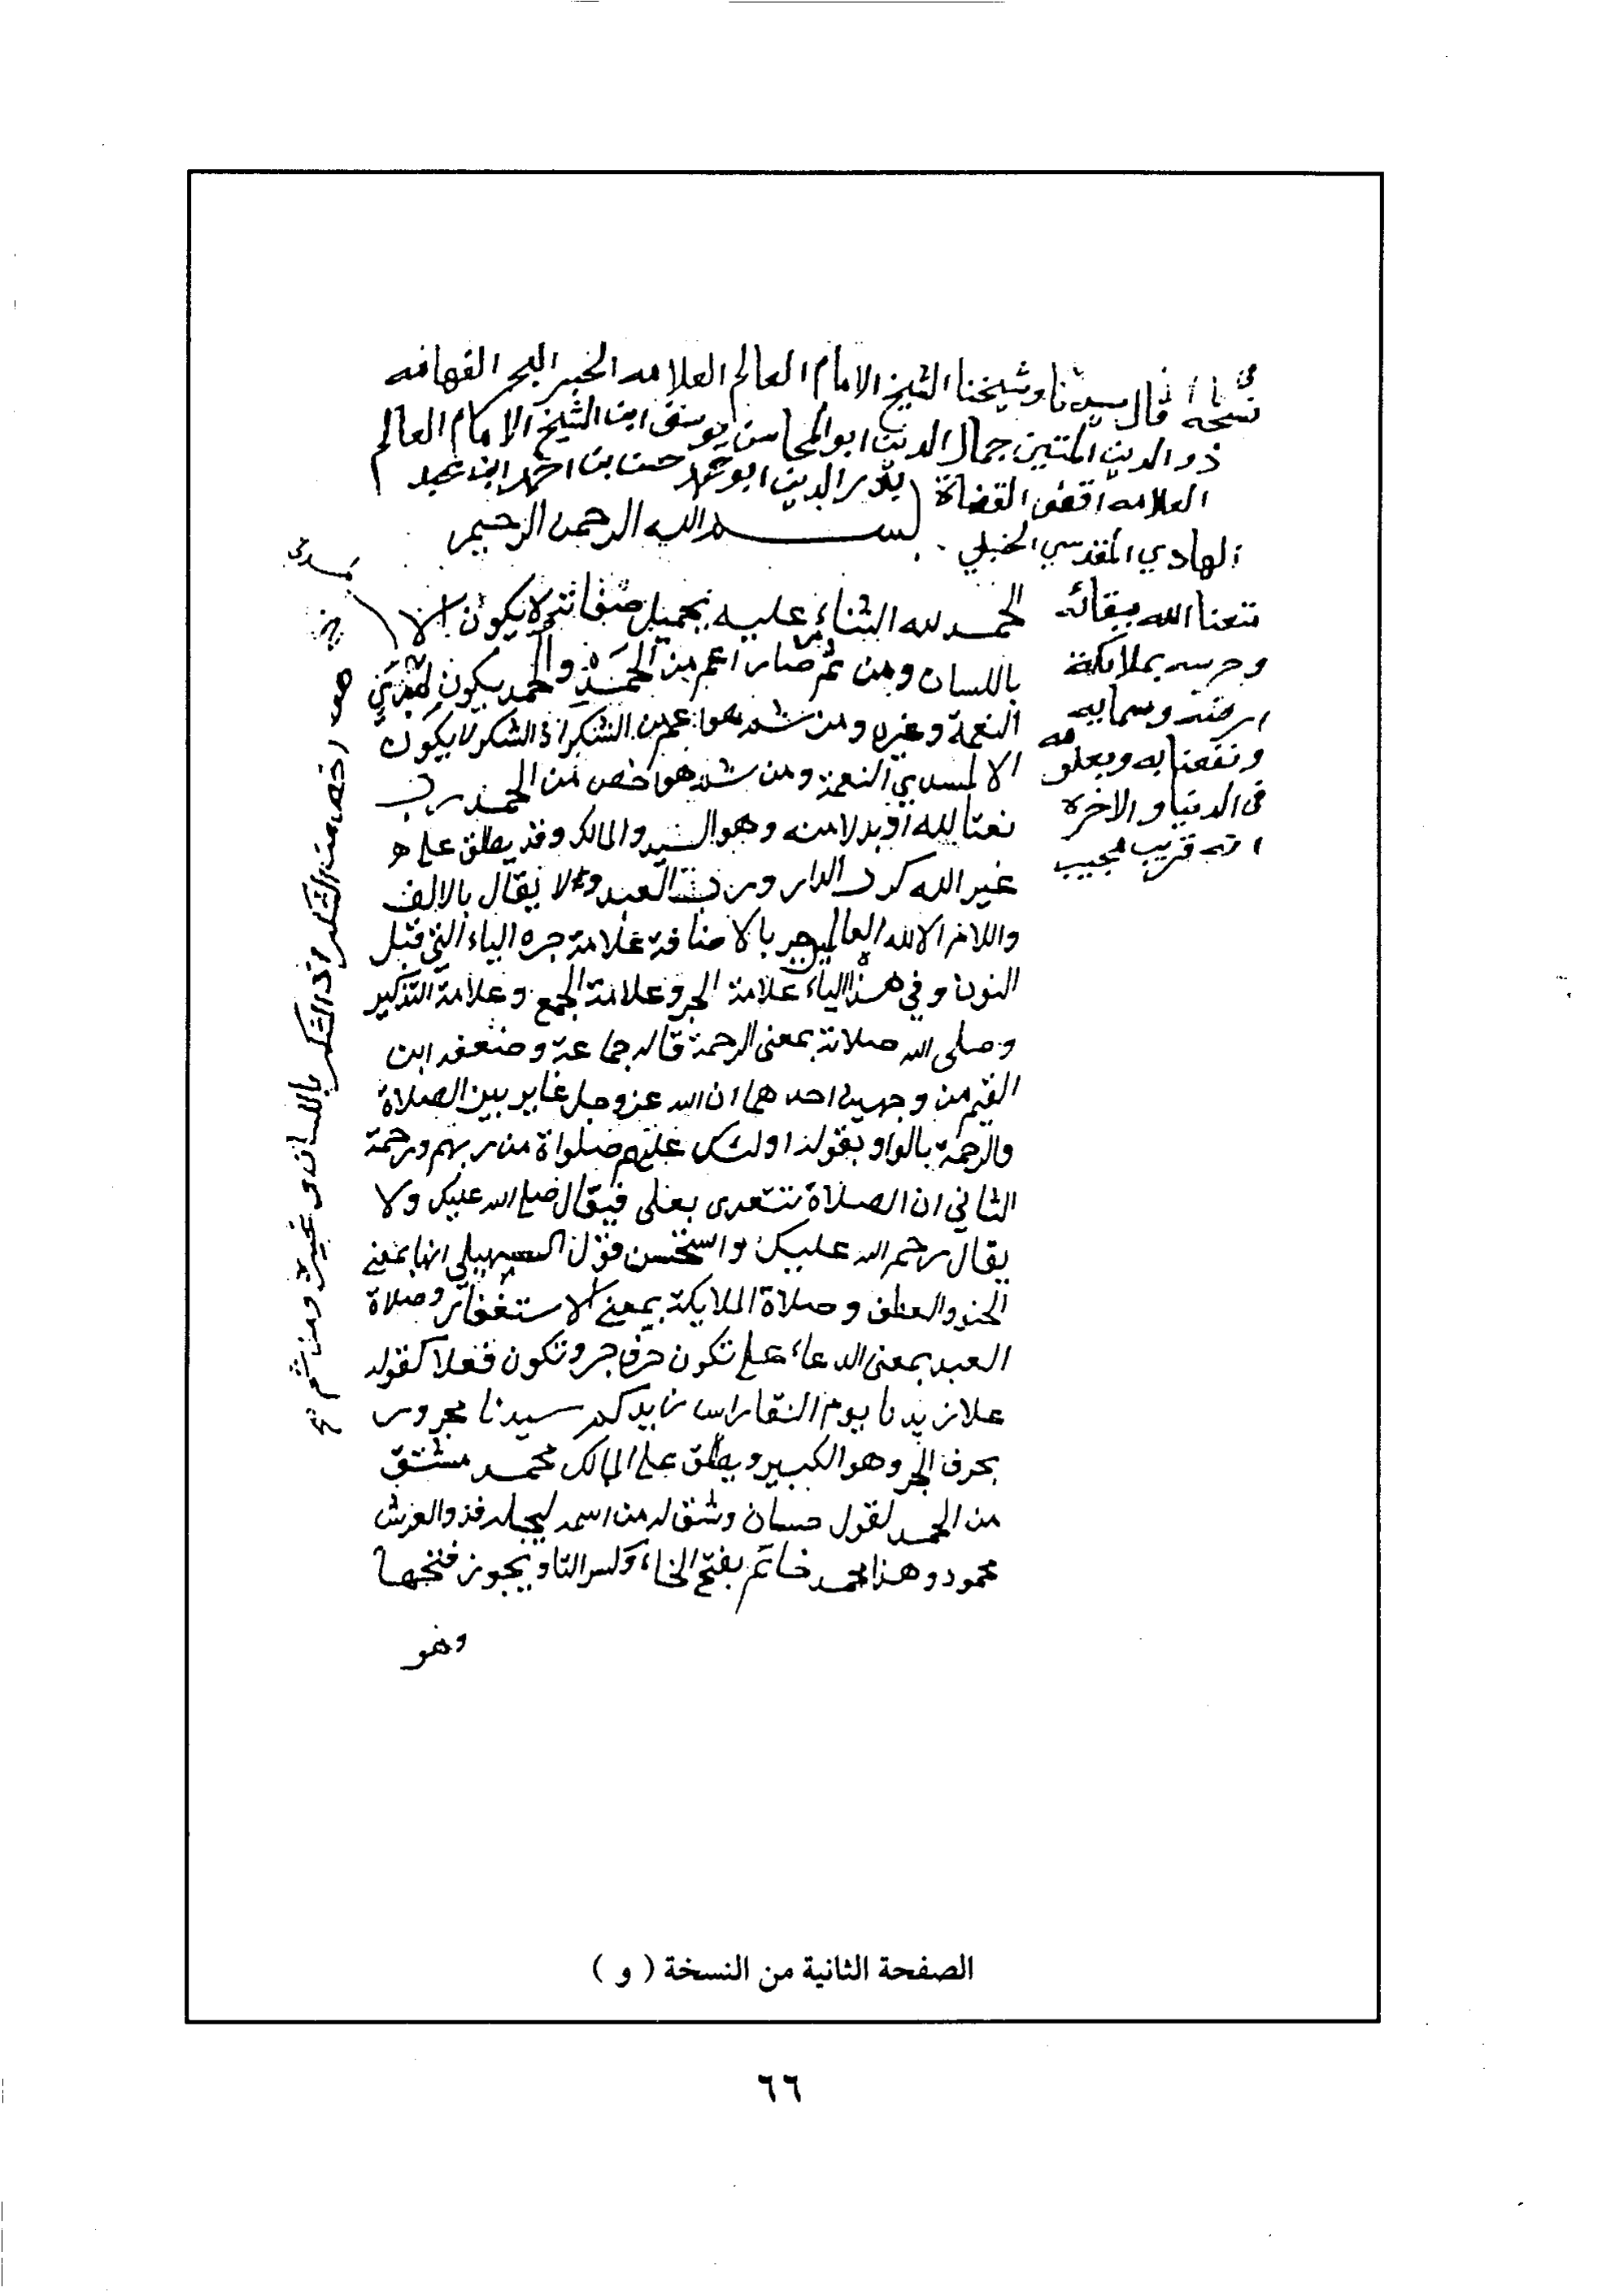 في نسخة قال سيدنا وشيخنا الشيخ الامام العالم العلامه الحبر البحر الفهامه
ذو الدين المتين جمال الدين ابو المحاسن يوسف ابن الشيخ الامام العالم
العلامه اقضى القضاة بدر الدين ابو محمد حسن بن احمد ابن عبد
الهادي المقدسي الحنبلي
متعنا الله ببقائه
وحرسه بملايكة
ارضه وسمايه
ونفعنا به وبعلومه
في الدنيا والاخره
انه قريب مجيب
بسم الله الرحمن الرحيم
الحمد لله الثناء عليه بجميل صفاته لا يكون الا
باللسان ومن ثم صار اعم من الحمد والحمد يكون لمسدي
النعمة وغيره ومن ثم هو اعم من الشكر اذ الشكر لا يكون
الا لمسدي النعمة ومن ثم هو اخص من الحمد رب
نعتا لله او بدلا منه وهو السيد والمالك وقد يطلق على
غير الله كرب الدار ورب العبد ولا يقال بالالف
واللام الا لله العالمين جر بالاضافة علامة جره الياء التي قبل
النون وفي هذه الياء علامة الجر وعلامة الجمع وعلامة التذكير
وصلى الله صلاته بمعنى الرحمة قاله جماعة وضعفه ابن
القيم من وجهين احدهما ان الله عز وجل غاير بين الصلاة
والرحمة بالواو بقوله اولئك عليهم صلواة من ربهم ورحمة
الثاني ان الصلاة تتعدى بعلى فيقال صلى الله عليك ولا
يقال رحم الله عليك واستحسن قول السهيلي انها بمعنى
الحنو والعطف وصلاة الملايكة بمعنى الاستغفار وصلاة
العبد بمعنى الدعاء على تكون حرف جر وتكون فعلا كقوله
علا زيدنا يوم النقا راس زيدكم سيدنا مجرور
بحرف الجر وهو الكبير ويطلق على المالك محمد مشتق
من الحمد لقول حسان وشق له من اسمه ليجله فذو العرش
محمود وهذا محمد خاتم بفتح الخاء وكسر التاء ويجوز فتحها
وهو
اخص من الشكر اذ الشكر باللسان وغيره ومن ثم
الصفحة الثانية من النسخة ( و )
٦٦